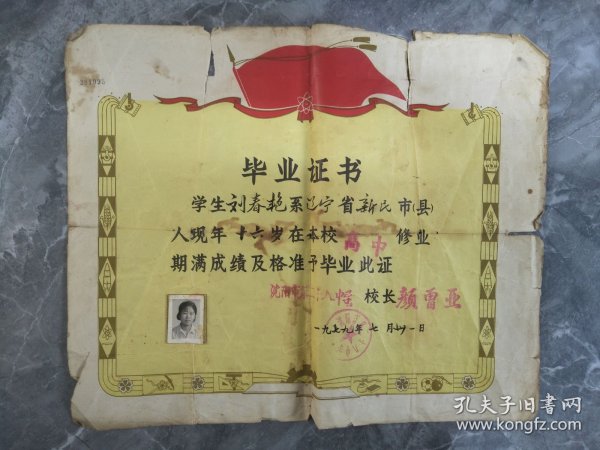 毕业证书
学生刘春艳系辽宁省新民市(县)
人现年十六岁在本校高中修业
期满成绩及格准予毕业此证
校长颜曾亚
一九七九年七月
孔夫子旧书网
www.kongfz.com